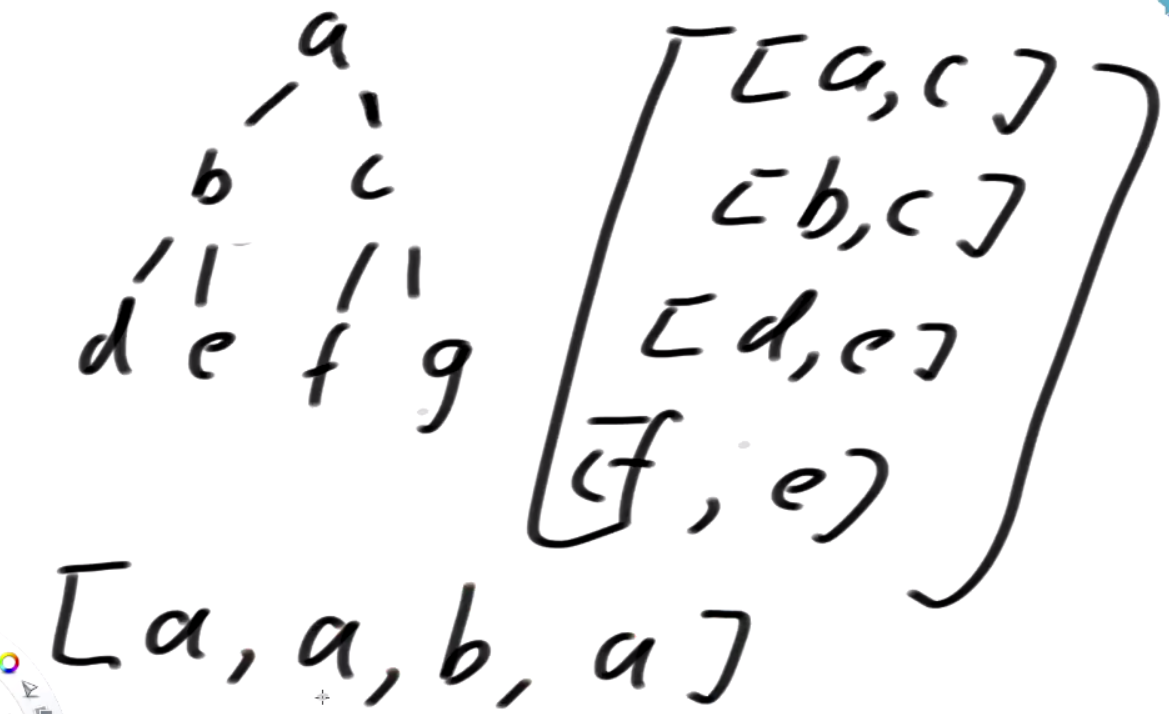 a
b c
d e f g
[[a,c]
[b,c]
[d,e]
[f,e]]
[a,a,b,a]